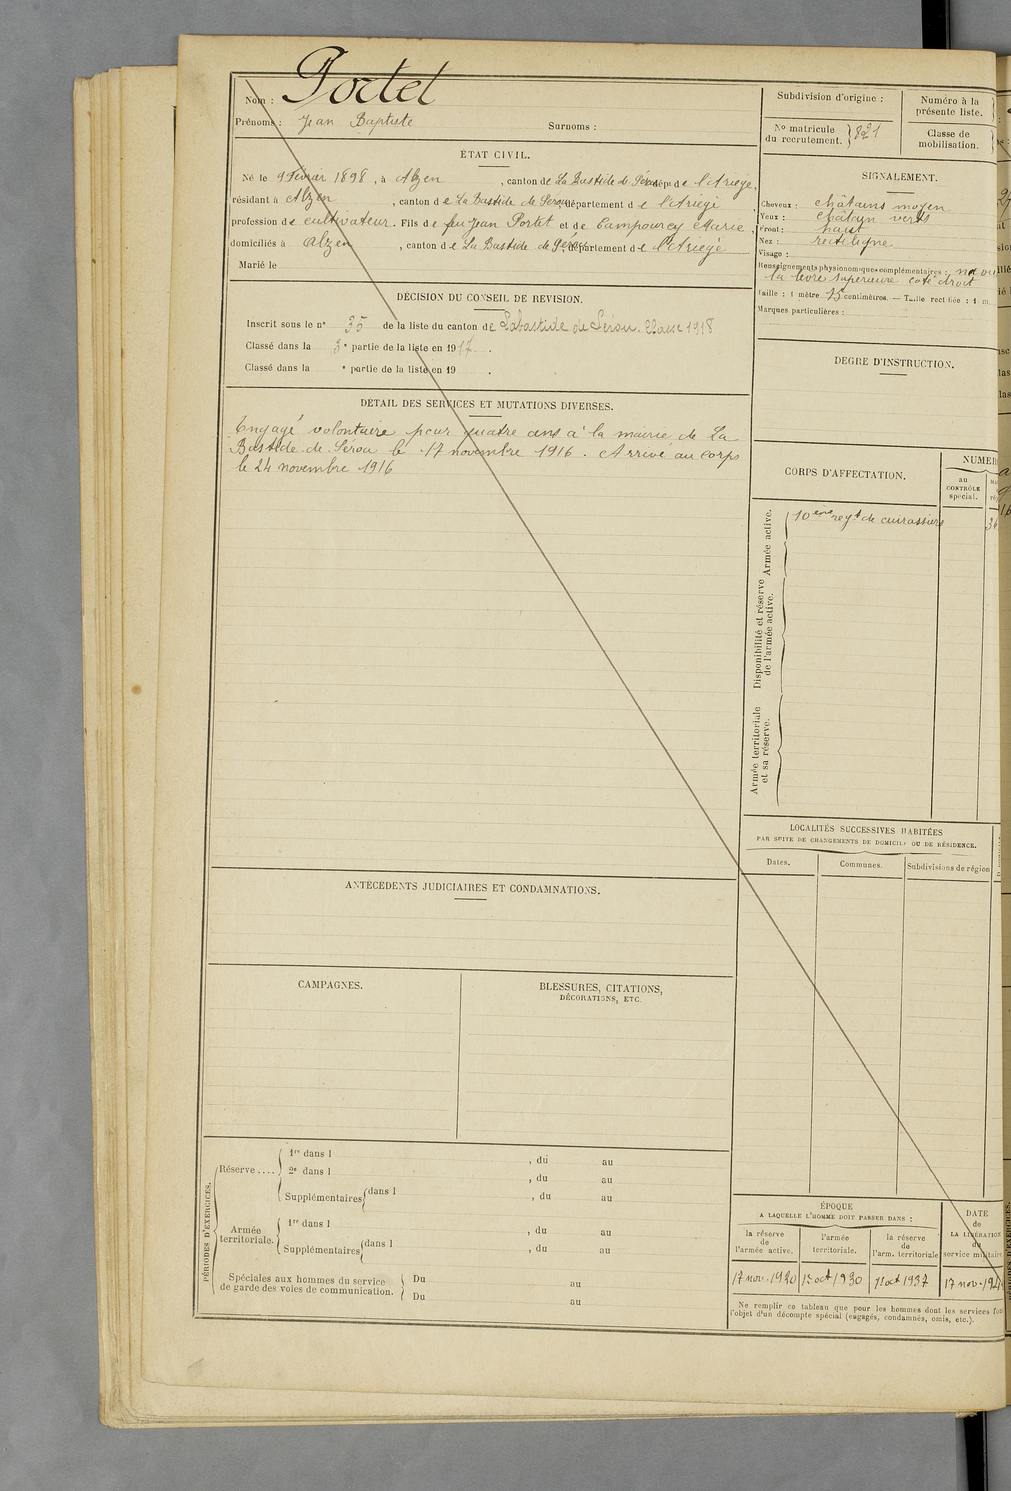 Nom : Portet
Prénoms : Jean Baptiste Surnoms :
ÉTAT CIVIL.
Né le 9 février 1898, à Alzen, canton de La Bastide de Sérou, dépt de l'Ariège,
résidant à Alzen, canton de La Bastide de Sérou, département de l'Ariège,
profession de cultivateur. Fils de feu Jean Portet et de Campourcy Marie,
domiciliés à Alzen, canton de La Bastide de Sérou, département de l'Ariège
Marié le
DÉCISION DU CONSEIL DE REVISION.
Inscrit sous le n° 35 de la liste du canton de Labastide de Sérou. Classe 1918
Classé dans la 3e partie de la liste en 1917.
Classé dans la e partie de la liste en 19 .
DÉTAIL DES SERVICES ET MUTATIONS DIVERSES.
Engagé volontaire pour quatre ans à la mairie de La
Bastide de Sérou le 17 novembre 1916. Arrivé au corps
le 24 novembre 1916
ANTÉCÉDENTS JUDICIAIRES ET CONDAMNATIONS.
CAMPAGNES.
BLESSURES, CITATIONS,
DÉCORATIONS, ETC.
PÉRIODES D'EXERCICES.
Réserve ....
1re dans l , du au
2e dans l , du au
Supplémentaires dans l , du au
Armée
territoriale.
1re dans l , du au
Supplémentaires dans l , du au
Spéciales aux hommes du service
de garde des voies de communication.
Du au
Du au
Subdivision d'origine :
No matricule
du recrutement.
821
Numéro à la
présente liste.
Classe de
mobilisation.
SIGNALEMENT.
Cheveux : châtains moyen
Yeux : châtain verts
Front : haut
Nez : rectiligne
Visage :
Renseignements physionomiques complémentaires :
la lèvre supérieure coté droit
Taille : 1 mètre centimètres. — Taille rectifiée : 1 m.
Marques particulières :
DEGRÉ D'INSTRUCTION.
CORPS D'AFFECTATION.
au
CONTRÔLE
spécial.
Armée active.
10ème regt de cuirassiers
Disponibilité et réserve
de l'armée active.
Armée territoriale
et sa réserve.
LOCALITÉS SUCCESSIVES HABITÉES
PAR SUITE DE CHANGEMENTS DE DOMICILE OU DE RÉSIDENCE.
Dates. Communes. Subdivisions de région
ÉPOQUE
A LAQUELLE L'HOMME DOIT PASSER DANS :
la réserve
de
l'armée active.
l'armée
territoriale.
la réserve
de
l'arm. territoriale
DATE
de
LA LIBÉRATION
du
service militaire
17 nov. 1920 1er oct 1930 1er oct 1937 17 nov. 194
Ne remplir ce tableau que pour les hommes dont les services font
l'objet d'un décompte spécial (engagés, condamnés, omis, etc.).